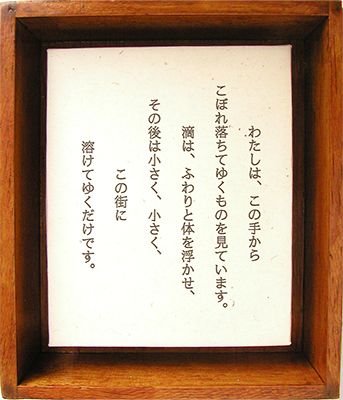 わたしは、この手から
こぼれ落ちてゆくものを見ています。
滴は、ふわりと体を浮かせ、
その後は小さく、小さく、
この街に
溶けてゆくだけです。